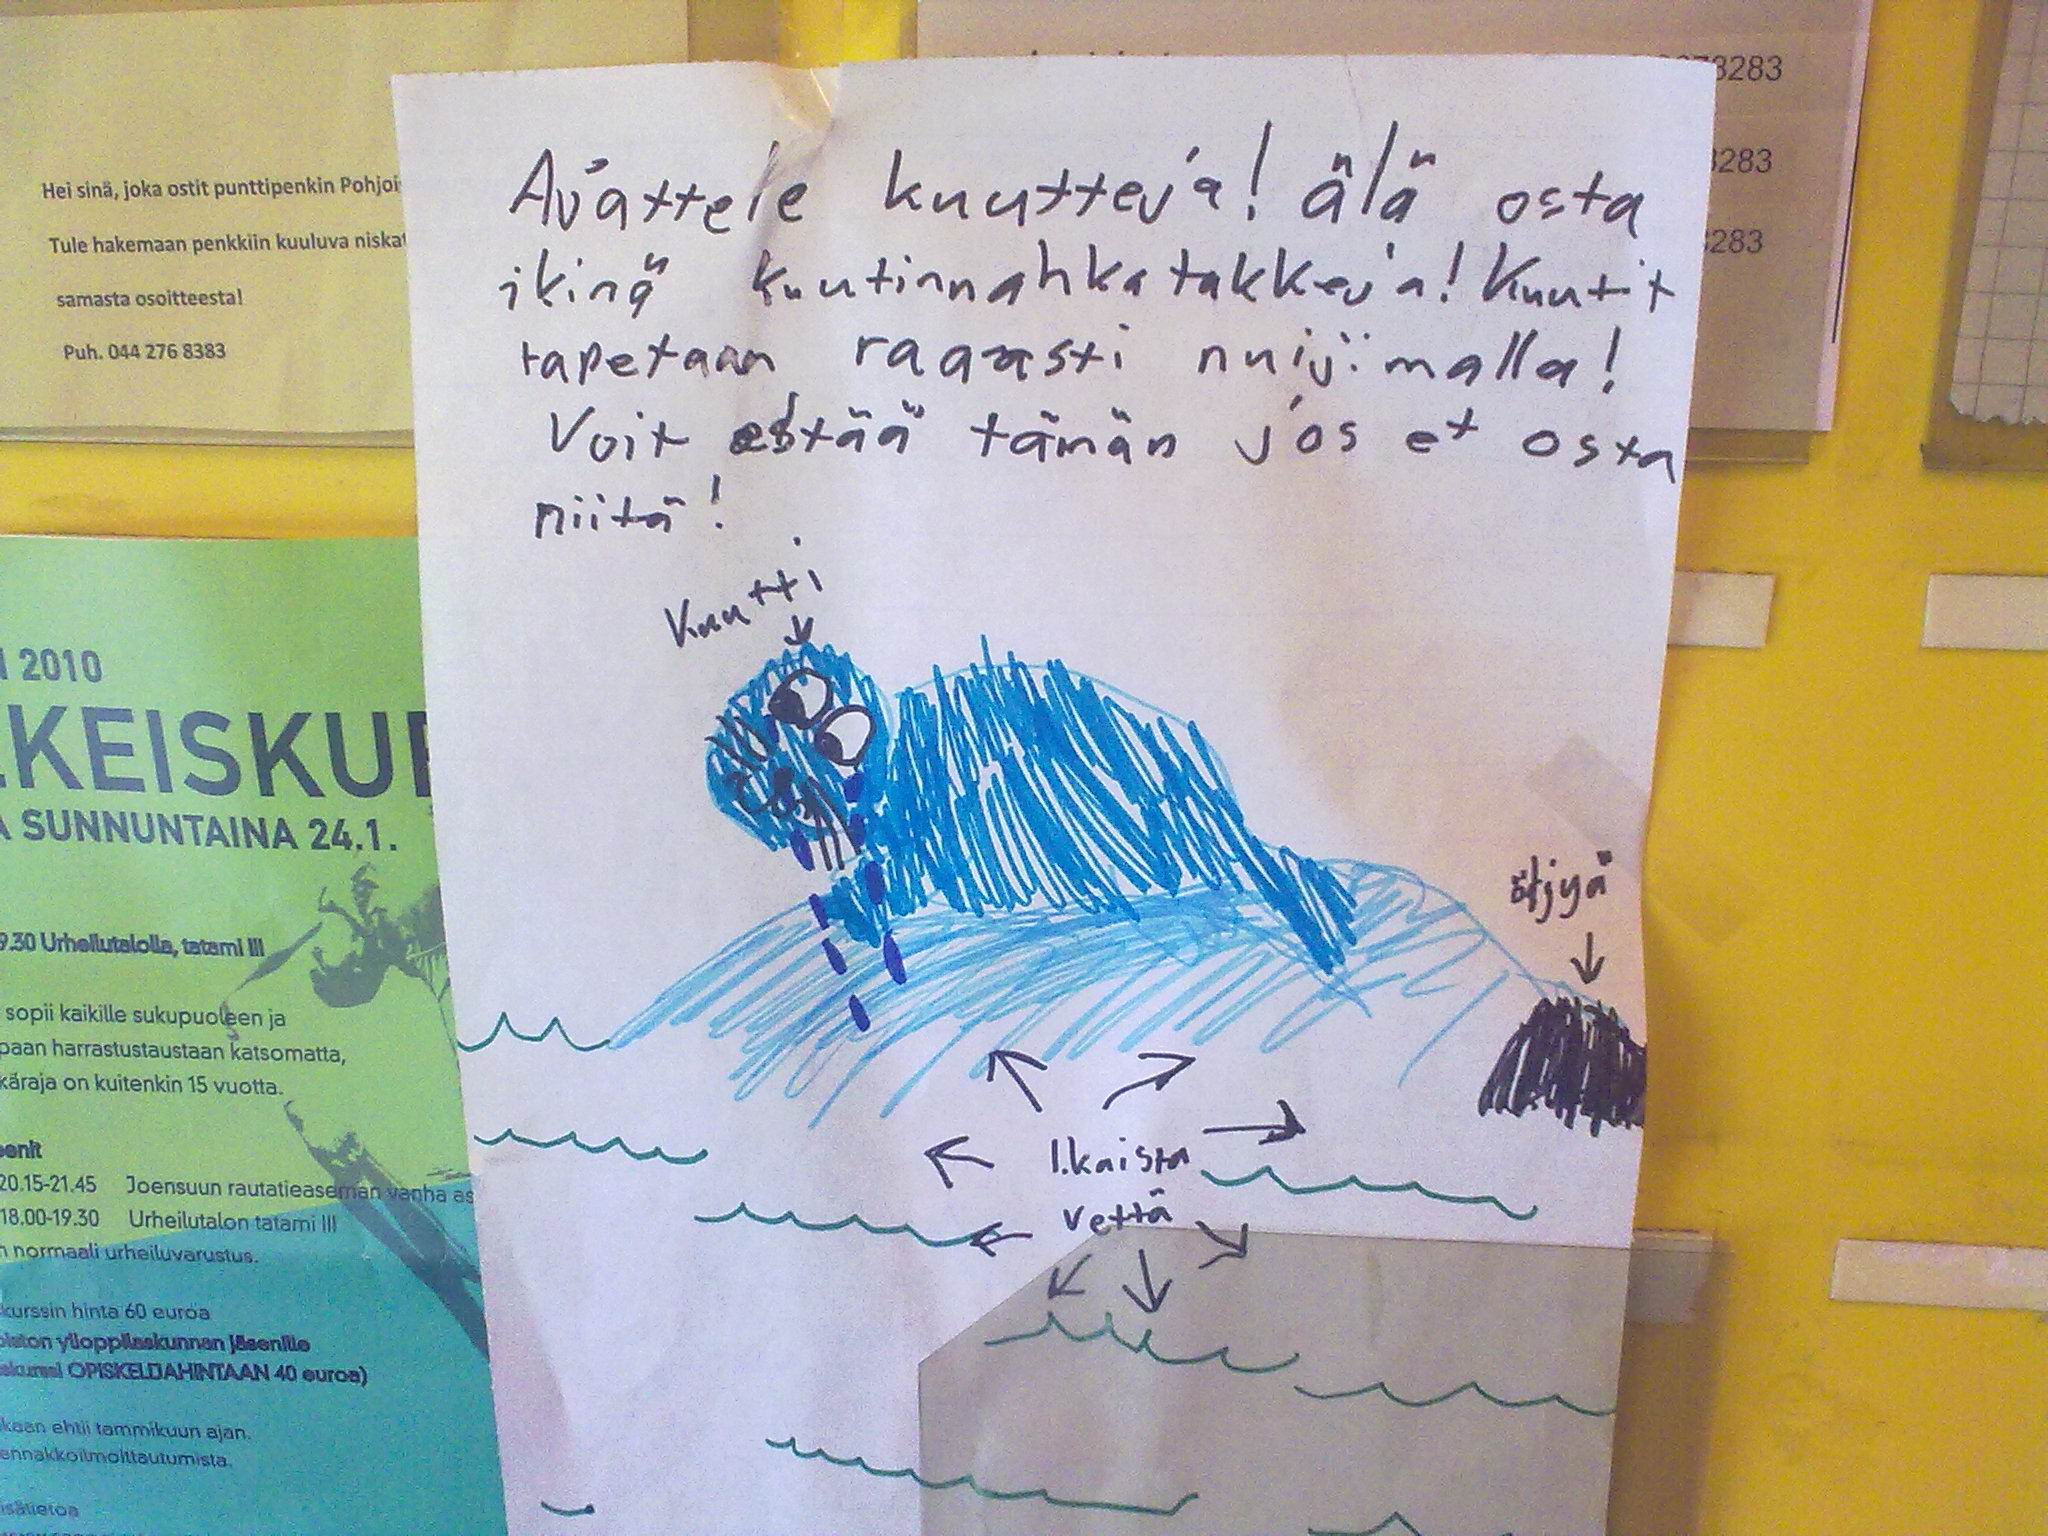 Hei sinä, joka ostit punttipenkin
Tule hakemaan penkkiin kuuluva
samasta osoitteesta!
Puh. 044 276 8383
8283
3283
3283
Ajattele kuutteja! älä osta
ikinä kuutinnahkatakkeja! Kuutit
tapetaan raaasti nuijimalla!
Voit estää tämän jos et osta
niitä!
Kuutti
öljyä
Likaista
vettä
2010
SUNNUNTAINA 24.1.
9.30 Urheilutalolla, tatami III
sopii kaikille sukupuoleen ja
harrastustaustaan katsomatta,
on kuitenkin 15 vuotta.
20.15-21.45 Joensuun rautatieaseman vanha
18.00-19.30 Urheilutalon tatami III
normaali urheiluvarustus.
hinta 60 euroa
ylioppilaskunnan jäsenille
OPISKELIJAHINTAAN 40 euroa)
ehtii tammikuun ajan.